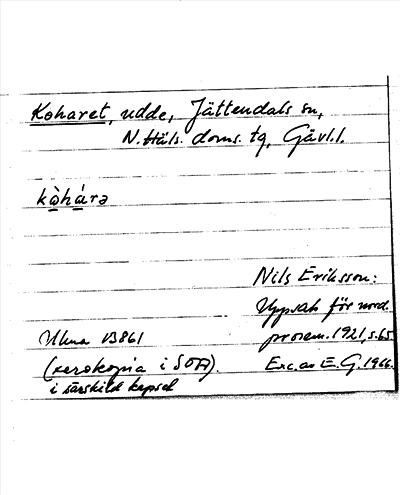 Koharet, udde, Jättendals sn,
N. Häls. doms. tg, Gävl.l.
kòhárə
Nils Eriksson:
Uppsats för nord.
prosem. 1921, s. 65
Ulma B861
(xerokopia i SOA).
i särskild kapsel
Exc. av E.G. 1966.